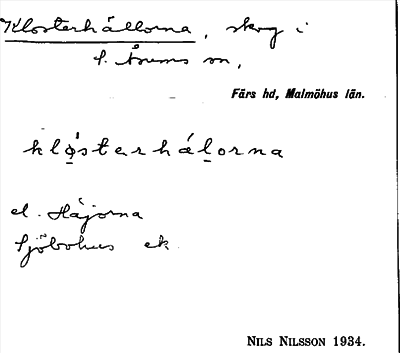 Klosterhällorna, skog i
S. Åsums sn,
Färs hd, Malmöhus län.
klo̱sterhäḻorna
el. Häjorna
Sjöbohus ek.
NILS NILSSON 1934.